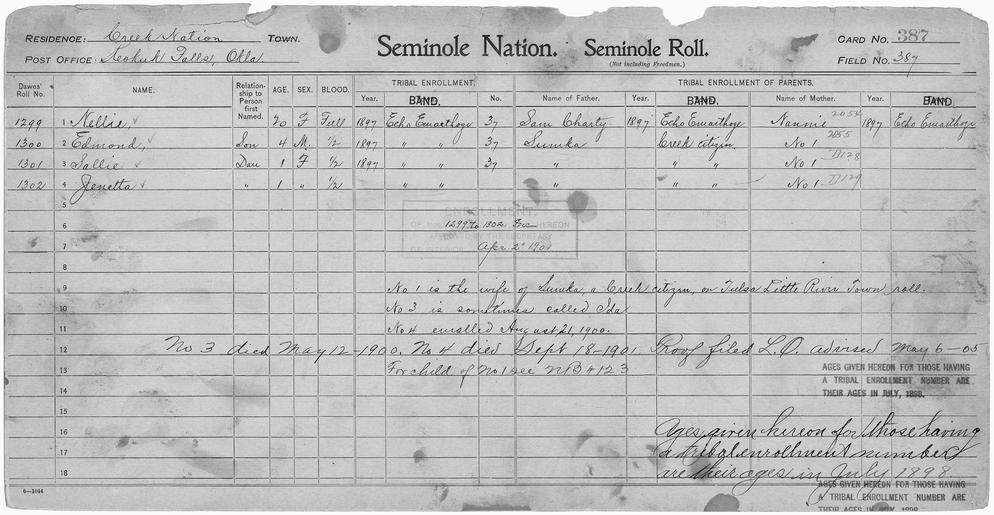 RESIDENCE: Creek Nation TOWN. Seminole Nation. Seminole Roll. CARD NO. 387
POST OFFICE: Keokuk Falls, Okla. (Not including Freedmen.) FIELD NO. 387
Dawes' Roll No. NAME. Relationship to Person first Named. AGE. SEX. BLOOD. TRIBAL ENROLLMENT. TRIBAL ENROLLMENT OF PARENTS.
Year. BAND. No. Name of Father. Year. BAND. Name of Mother. Year. BAND.
1299 1 Nellie, 20 F Full 1897 Echo Emarthoge 37 Sam Charty 1897 Echo Emarthoge Nannie 2054 1897 Echo Emarthoge
1300 2 Edmond, Son 4 M. 1/2 1897 " " 37 Sumka Creek citizen. No 1 2055
1301 3 Sallie Dau 1 F 1/2 1897 " " 37 " " " No 1 D128
1302 4 Jenetta " 1 " 1/2 " " " " No 1 D129
5
6 ENROLLMENT, 1299 to 1302 Inc HEREON
7 Apr 2" 1901
8
9 No 1 is the wife of Sumka, a Creek citizen, on Tulsa Little River Town roll.
10 No 3 is sometimes called Ida
11 No 4 enrolled August 21, 1900.
12 No 3 died May 12-1900. No 4 died Sept 18-1901. Proof filed L.O. advised May 6-05
13 For child of No 1 see NB # 123
AGES GIVEN HEREON FOR THOSE HAVING
14 A TRIBAL ENROLLMENT NUMBER ARE
THEIR AGES IN JULY, 1898.
15
16 Ages given hereon for those having
17 a tribal enrollment number
18 are their ages in July 1898
6-1064 AGES GIVEN HEREON FOR THOSE HAVING
A TRIBAL ENROLLMENT NUMBER ARE
THEIR AGES IN JULY 1898